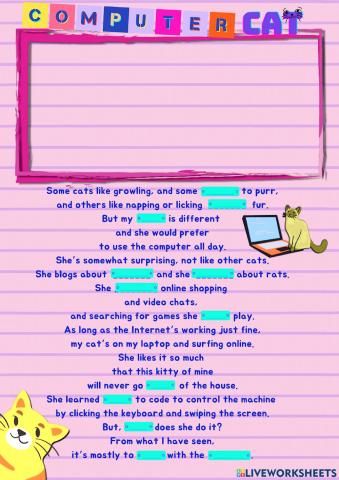 COMPUTER CAT
Some cats like growling, and some to purr,
and others like napping or licking fur.
But my is different
and she would prefer
to use the computer all day.
She's somewhat surprising, not like other cats.
She blogs about and she about rats.
She online shopping
and video chats,
and searching for games she play.
As long as the Internet's working just fine,
my cat's on my laptop and surfing online.
She likes it so much
that this kitty of mine
will never go of the house.
She learned to code to control the machine
by clicking the keyboard and swiping the screen.
But, does she do it?
From what I have seen,
it's mostly to with the .
LIVEWORKSHEETS